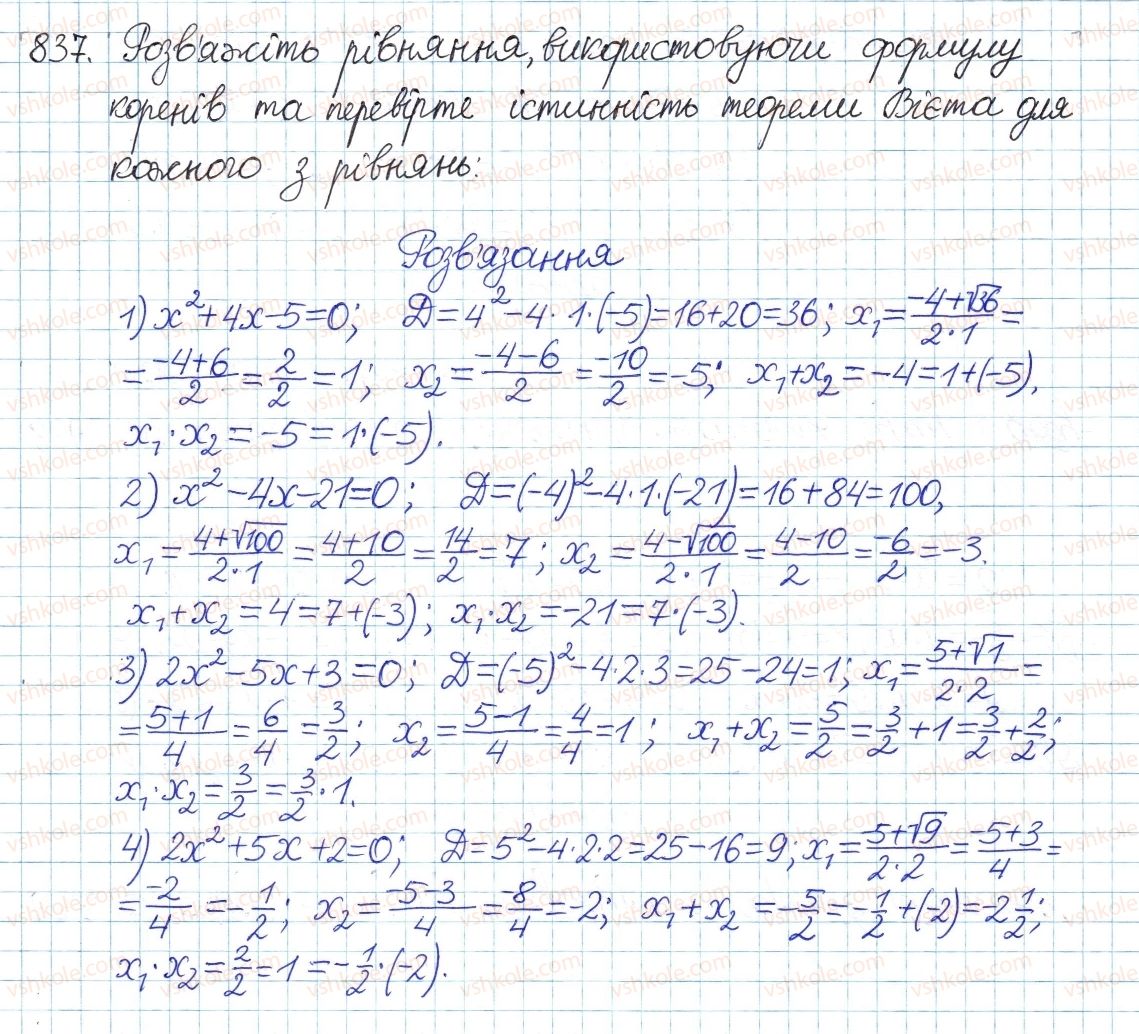 837. Розв'яжіть рівняння, використовуючи формулу
коренів та перевірте істинність теореми Вієта для
кожного з рівнянь:
Розв'язання
1) x²+4x-5=0; Д=4²-4·1·(-5)=16+20=36; x₁=(-4+√36)/(2·1)=
=(-4+6)/2=2/2=1; x₂=(-4-6)/2=-10/2=-5; x₁+x₂=-4=1+(-5),
x₁·x₂=-5=1·(-5).
2) x²-4x-21=0; Д=(-4)²-4·1·(-21)=16+84=100,
x₁=(4+√100)/(2·1)=(4+10)/2=14/2=7; x₂=(4-√100)/(2·1)=(4-10)/2=-6/2=-3.
x₁+x₂=4=7+(-3); x₁·x₂=-21=7·(-3).
3) 2x²-5x+3=0; Д=(-5)²-4·2·3=25-24=1; x₁=(5+√1)/(2·2)=
=(5+1)/4=6/4=3/2; x₂=(5-1)/4=4/4=1; x₁+x₂=5/2=3/2+1=3/2+2/2;
x₁·x₂=3/2=3/2·1.
4) 2x²+5x+2=0; Д=5²-4·2·2=25-16=9; x₁=(-5+√9)/(2·2)=(-5+3)/4=
=-2/4=-1/2; x₂=(-5-3)/4=-8/4=-2; x₁+x₂=-5/2=-1/2+(-2)=-2 1/2;
x₁·x₂=2/2=1=-1/2·(-2).